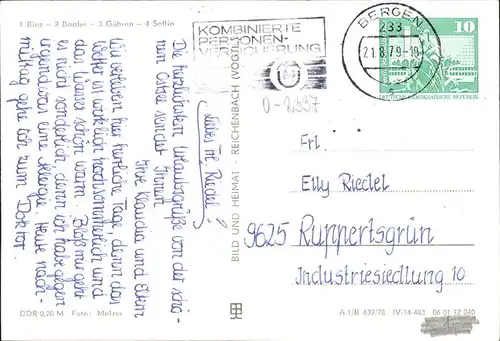 1 Binz – 2 Baabe – 3 Göhren – 4 Sellin
Liebes Frl. Riedel!
Die herzlichsten Urlaubsgrüße von der schö-
nen Ostsee sendet Ihnen
Ihre Klaudia und Eltern
Wir verleben hier herrliche Tage, denn das
Wetter ist wirklich hochsommerlich und
das Wasser schön warm. Bloß mir geht
es nicht sonderlich, denn ich habe gegen
irgendwas eine Allergie. Heute nach-
mittag gehe ich zum Doktor.
DDR 0,20 M Foto: Melzer
BILD UND HEIMAT · REICHENBACH (VOGTL)
KOMBINIERTE
PERSONEN-
VERSICHERUNG
BERGEN
233
21.8.79-10
10
DEUTSCHE DEMOKRATISCHE REPUBLIK
0-2337
Frl.
Elly Riedel
9625 Ruppertsgrün
Industriesiedlung 10
A 1/B 637/78 IV-14-483 06 01 12 040